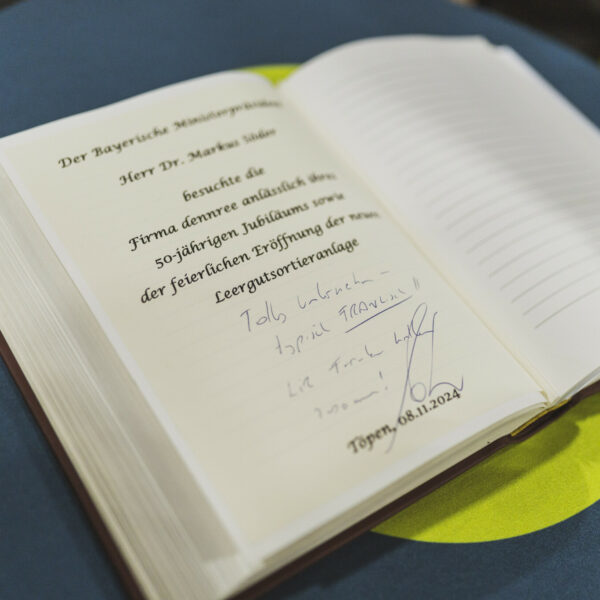 Der Bayerische Ministerpräsident
Herr Dr. Markus Söder
besuchte die
Firma dennree anlässlich ihres
50-jährigen Jubiläums sowie
der feierlichen Eröffnung der neuen
Leergutsortieranlage
Tolles Unternehmen –
typisch FRÄNKISCH!!
Wir Franken halten
zusammen!
Töpen, 08.11.2024